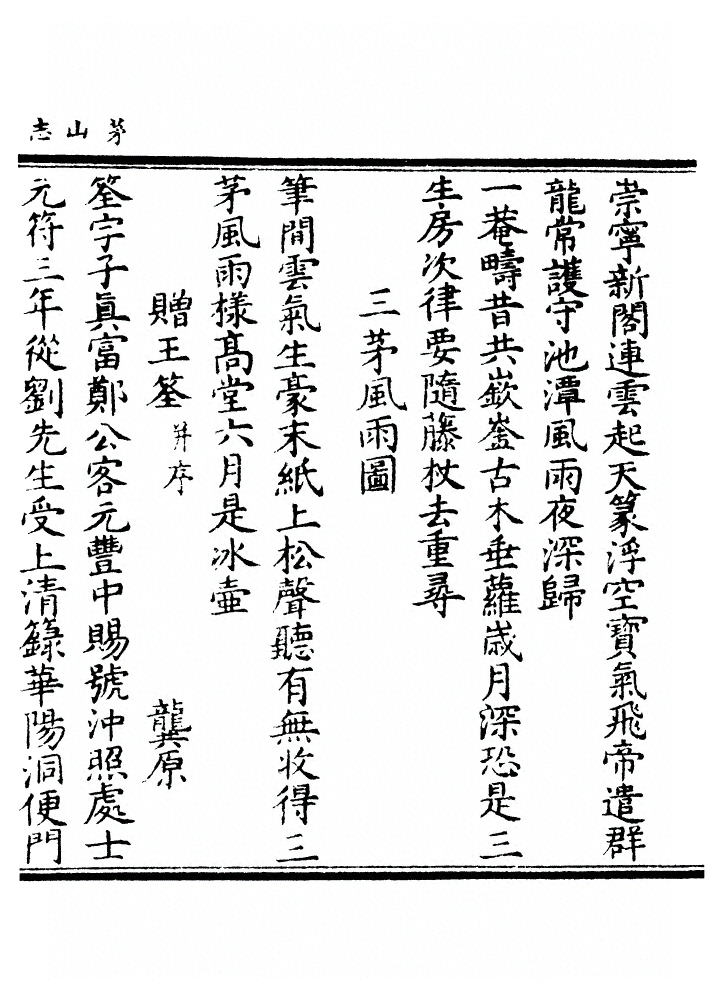 茅山志
崇寧新閣連雲起天篆浮空寶氣飛帝遣群
龍常護守池潭風雨夜深歸
一菴疇昔共嶔崟古木垂蘿歲月深恐是三
生房次律要隨藤杖去重尋
三茅風雨圖
筆間雲氣生豪末紙上松聲聽有無收得三
茅風雨樣高堂六月是冰壷
贈王筌并序 龔原
筌字子眞富鄭公客元豐中賜號沖照處士
元符三年從劉先生受上清籙華陽洞便門